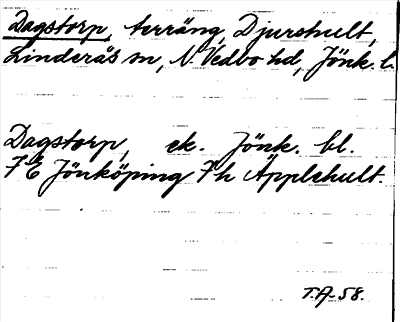 Dagstorp, terräng, Djurshult,
Linderås sn, N. Vedbo hd, Jönk. l.
Dagstorp, ek. Jönk. bl.
7 E Jönköping 7h Äpplehult.
T.A-58.